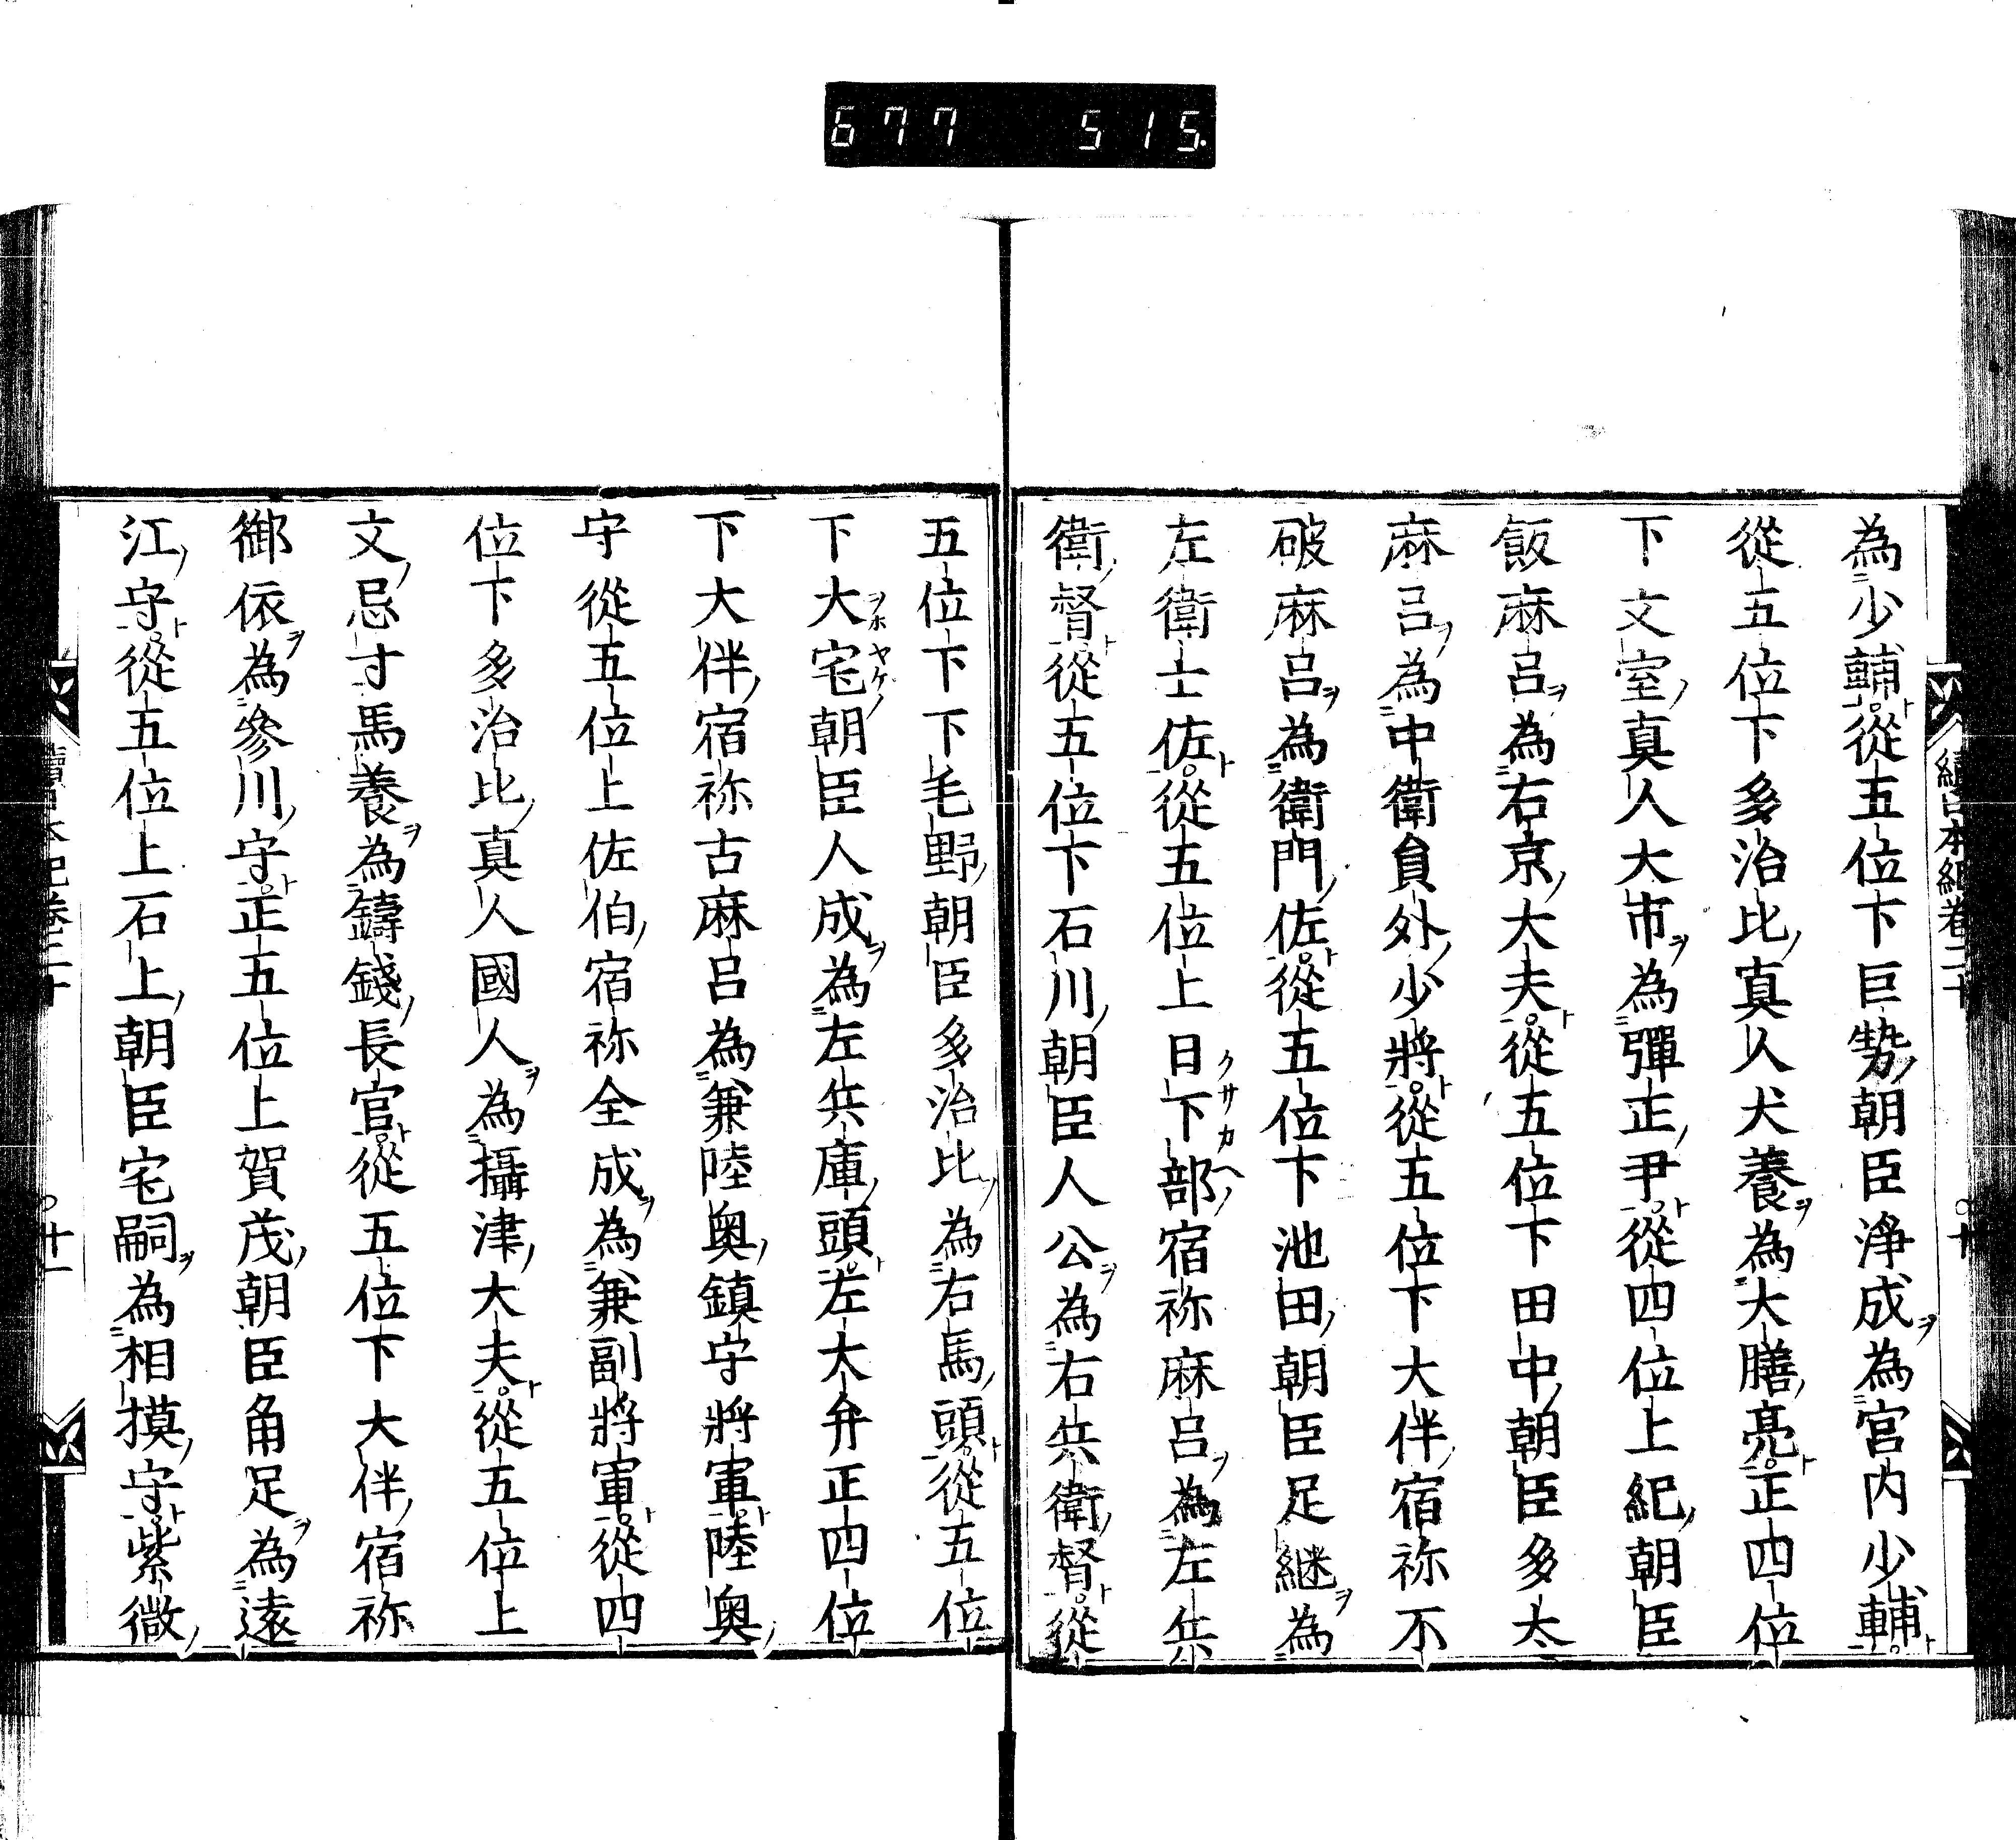 677 515.
續日本紀卷二十
十
為少輔從五位下巨勢朝臣淨成為宮内少輔
從五位下多治比真人犬養為大膳亮正四位
下文室真人大市為彈正尹從四位上紀朝臣
飯麻呂為右京大夫從五位下田中朝臣多太
麻呂為中衛員外少將從五位下大伴宿祢不
破麻呂為衛門佐從五位下池田朝臣足継為
左衛士佐從五位上日下部宿祢麻呂為左兵
衛督從五位下石川朝臣人公為右兵衛督從
五位下下毛野朝臣多治比為右馬頭從五位
下大宅朝臣人成為左兵庫頭左大弁正四位
下大伴宿祢古麻呂為兼陸奥鎮守將軍陸奥
守從五位上佐伯宿祢全成為兼副將軍從四
位下多治比真人國人為攝津大夫從五位上
文忌寸馬養為鑄錢長官從五位下大伴宿祢
御依為參川守正五位上賀茂朝臣角足為遠
江守從五位上石上朝臣宅嗣為相摸守紫微
續日本紀卷二十
十一